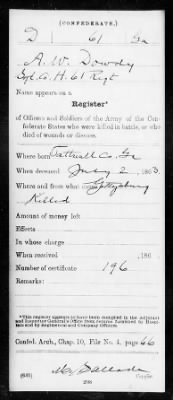 (CONFEDERATE.)
D 61 Ga
A. W. Dowdy
Co. H. 61 Regt
Name appears on a
Register*
of Officers and Soldiers of the Army of the Con-
federate States who were killed in battle, or who
died of wounds or disease.
Where born Tattnall Co. Ga
When deceased July 2, 1863
Where and from what cause Gettysburg
Killed
Amount of money left
Effects
In whose charge
When received , 186
Number of certificate 196
Remarks:
*This register appears to have been compiled in the Adjutant
and Inspector General's Office from returns furnished by Hospi-
tals and by regimental and Company Officers.
Confed. Arch., Chap. 10, File No. 4, page 66
(635)
Copyist.